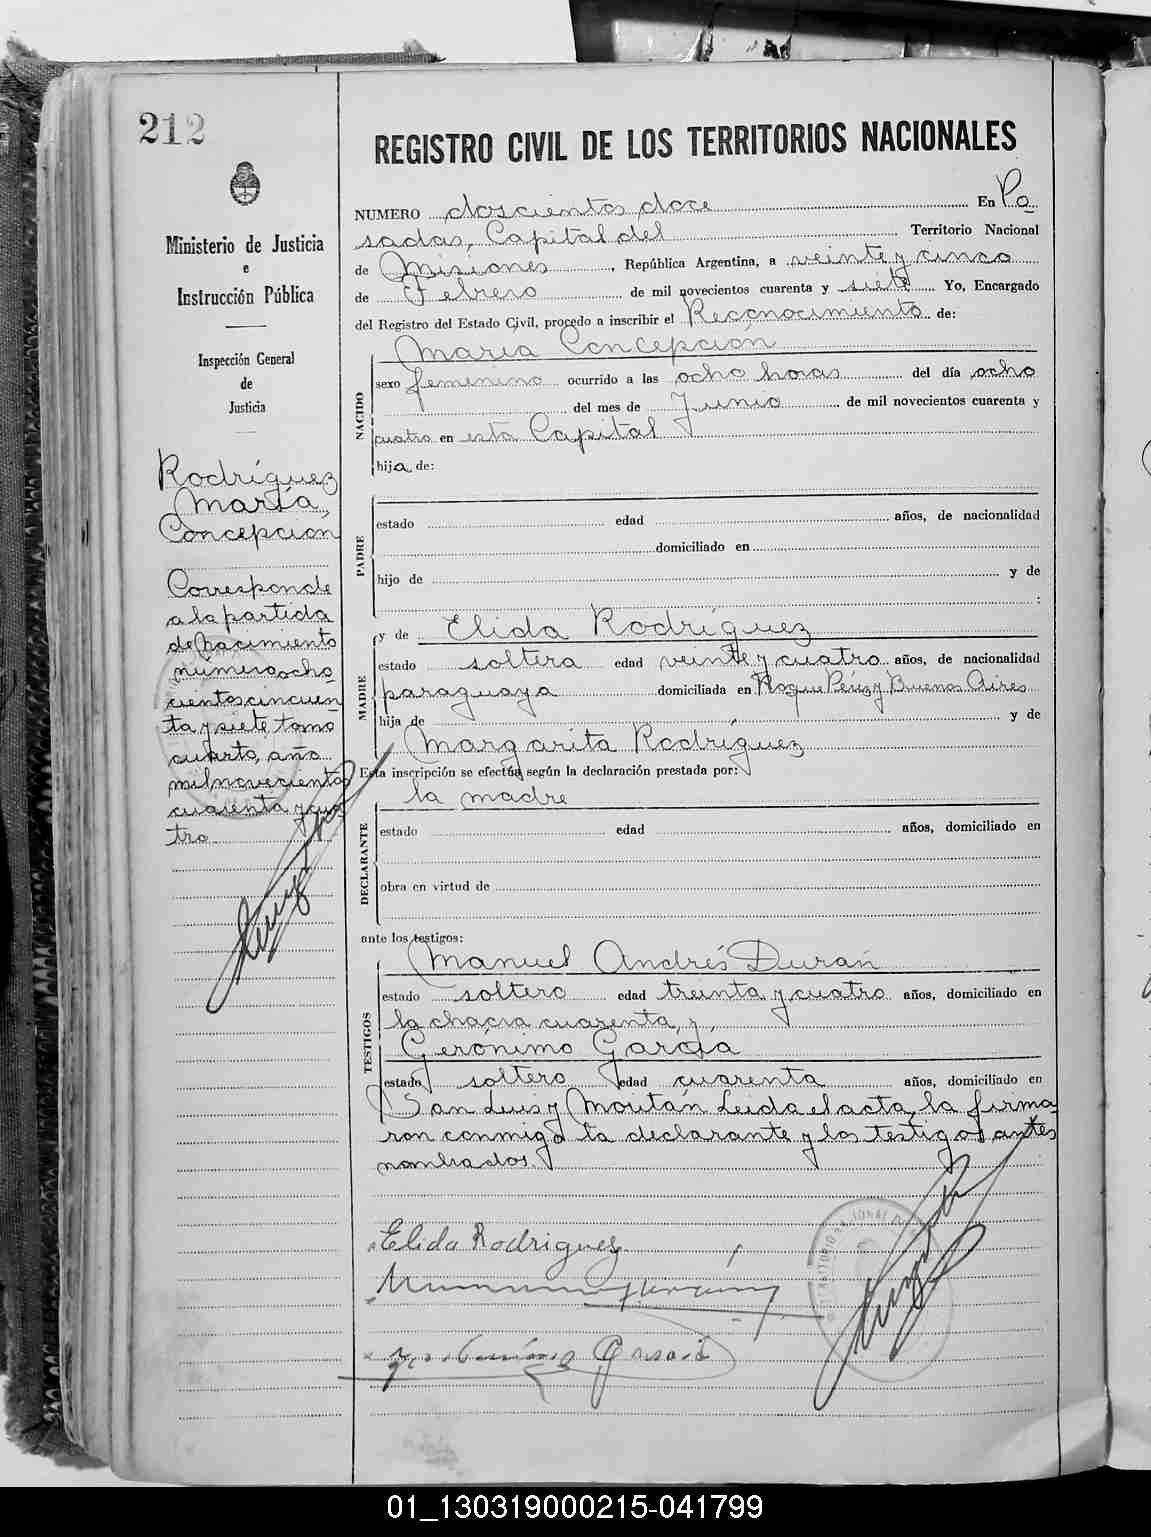 212
Ministerio de Justicia
e
Instrucción Pública
Inspección General
de
Justicia
Rodríguez
María,
Concepcion
Corresponde
a la partida
de nacimiento
número ocho
cientos cincuen
ta y siete, tomo
cuarto, año
mil novecientos
cuarenta y cua
tro
REGISTRO CIVIL DE LOS TERRITORIOS NACIONALES
NUMERO doscientos doce En Po
sadas, Capital del Territorio Nacional
de Misiones, República Argentina, a veinte y cinco
de Febrero de mil novecientos cuarenta y siete Yo, Encargado
del Registro del Estado Civil, procedo a inscribir el Reconocimiento de:
NACIDO
María Concepción
sexo femenino ocurrido a las ocho horas del día ocho
del mes de Junio de mil novecientos cuarenta y
cuatro en esta Capital
hija de:
PADRE
estado edad años, de nacionalidad
domiciliado en
hijo de y de
:
MADRE
y de Elida Rodríguez
estado soltera edad veinte y cuatro años, de nacionalidad
paraguaya domiciliada en Roque Pérez y Buenos Aires
hija de y de
Margarita Rodríguez
Esta inscripción se efectúa según la declaración prestada por:
la madre
DECLARANTE
estado edad años, domiciliado en
obra en virtud de
ante los testigos:
TESTIGOS
Manuel Andrés Durán
estado soltero edad treinta y cuatro años, domiciliado en
la chacra cuarenta, y
Gerónimo García
estado soltero edad cuarenta años, domiciliado en
San Luis y Moritán Leida el acta, la firma
ron conmigo la declarante y los testigos antes
nombrados.
Elida Rodriguez
01_130319000215-041799